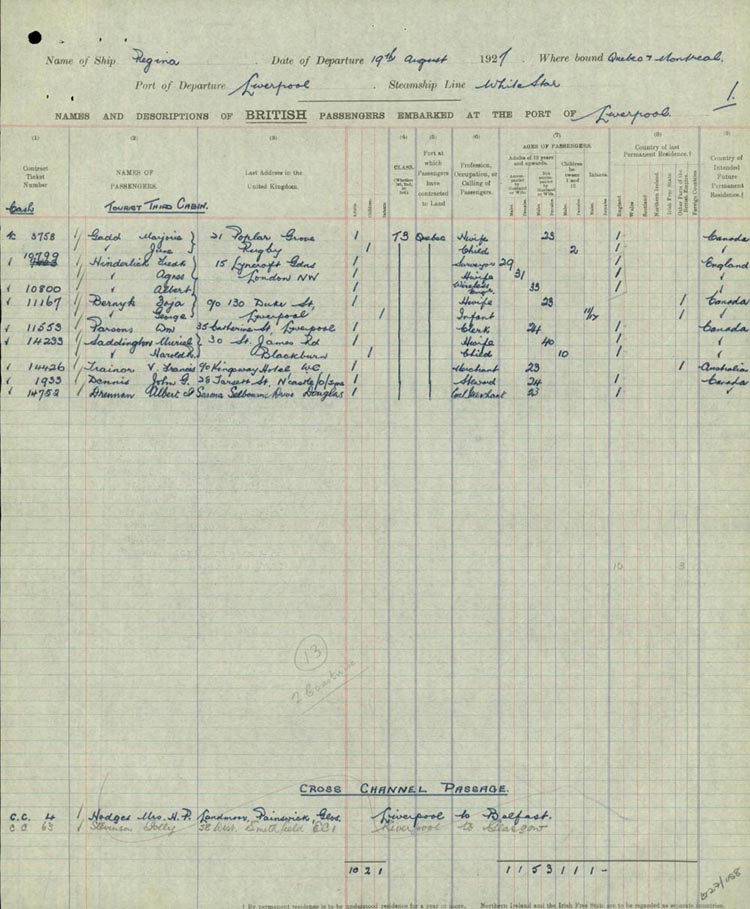 Name of Ship Regina Date of Departure 19th August 1927 Where bound Quebec & Montreal.
Port of Departure Liverpool Steamship Line White Star
1.
NAMES AND DESCRIPTIONS OF BRITISH PASSENGERS EMBARKED AT THE PORT OF Liverpool
(1) (2) (3) (4) (5) (6) (7) (8) (9)
Contract Ticket Number
NAMES OF PASSENGERS.
Last Address in the United Kingdom.
CLASS. (Whether 1st, 2nd, or 3rd.)
Port at which Passengers have contracted to Land
Profession, Occupation, or Calling of Passengers.
AGES OF PASSENGERS.
Adults of 12 years and upwards.
Children between 1 and 12
Infants.
Country of last Permanent Residence.†
England Wales Scotland Northern Ireland Irish Free State Other Parts of the British Empire. Foreign Countries
Country of Intended Future Permanent Residence.†
Cash TOURIST THIRD CABIN.
3758 Gadd Marjorie 21 Poplar Grove 1 T3 Quebec Hwife 23 1 Canada
" June Rugby 1 Child 2 1 "
10799 Hinderlich Fredk 15 Lyncroft Gdns 1 Surveyor 29 1 England
" Agnes London NW 1 Hwife 31 1 "
10800 " Albert 1 Wireless Engr 33 1 "
11167 Bernyk Zoja c/o 130 Duke St, 1 Hwife 23 1 Canada
" George Liverpool 1 Infant 1 "
11553 Parsons Wm 35 Catherine St, Liverpool 1 Clerk 24 1 Canada
14233 Saddington Muriel 30 St. James Rd 1 Hwife 40 1 "
" Harold Blackburn 1 Child 10 1 "
14426 Trainor V. Francis c/o Kingsway Hotel WC 1 Merchant 23 1 Australia
1933 Dennis John G. 28 St, Ncastle/o/Tyne 1 24 1 Canada
14752 Drennan Albert Selbourne Douglas 1 23 1 "
10 3
13
CROSS CHANNEL PASSAGE.
C.C. 4 1 Hodges Mrs. H.P. Painswick, Glos. Liverpool to Belfast.
C C 63 Stevenson Smithfield EC1 Liverpool to Glasgow
10 2 1 1 1 5 3 1 1 1 -
† By permanent residence is to be understood residence for a year or more. Northern Ireland and the Irish Free State are to be regarded as separate countries.